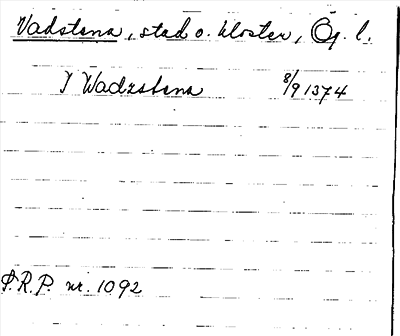 Vadstena, stad o. kloster, Ög. l.
I Wadzstena 8/9 1374
S.R.P. nr. 1092